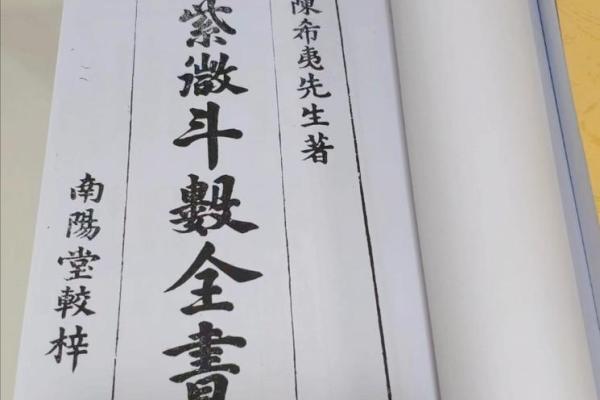 陳希夷先生著
紫微斗數全書
南陽堂較梓